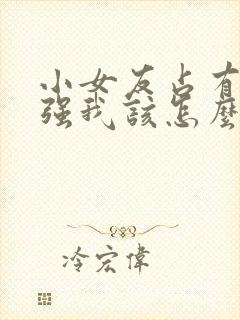 小女友占有
强我該怎麼
冷宏偉